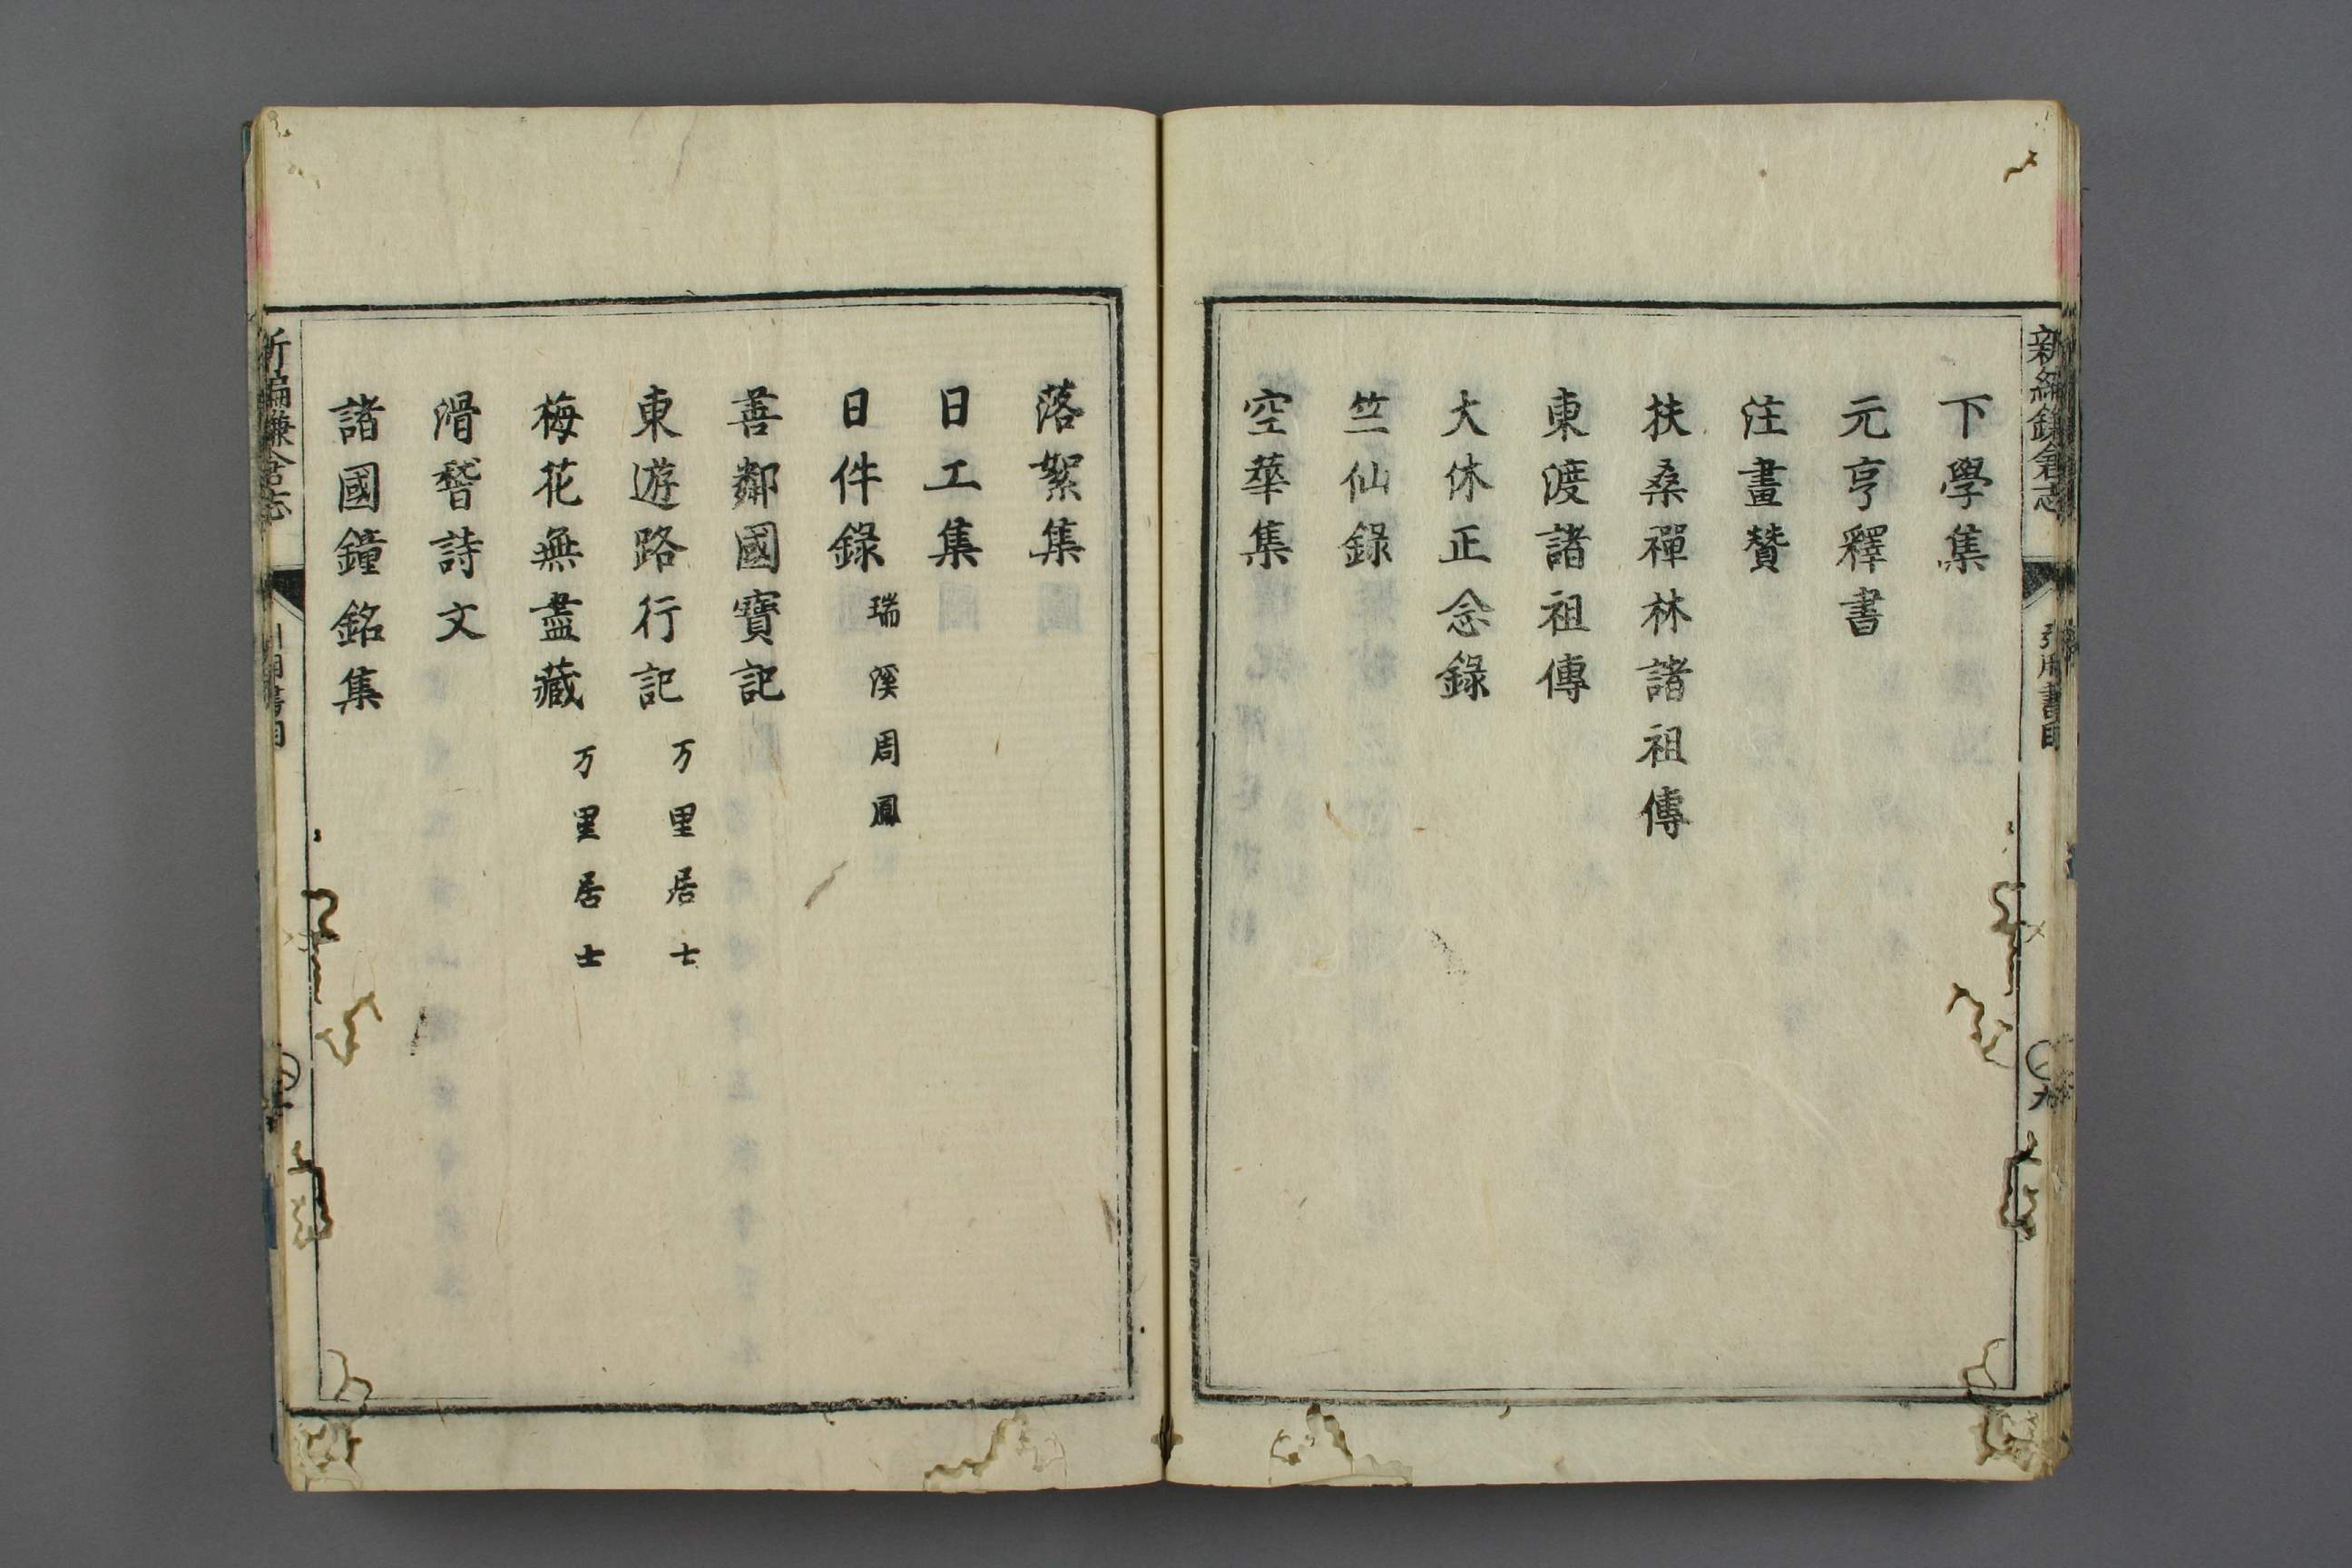 新編鎌倉志 引用書目 九
下學集
元亨釋書
注畫贊
扶桑禪林諸祖傳
東渡諸祖傳
大休正念錄
竺仙錄
空華集
落絮集
日工集
日件錄 瑞溪周鳳
善鄰國寶記
東遊路行記 万里居士
梅花無盡藏 万里居士
滑稽詩文
諸國鐘銘集
新編鎌倉志 引用書目